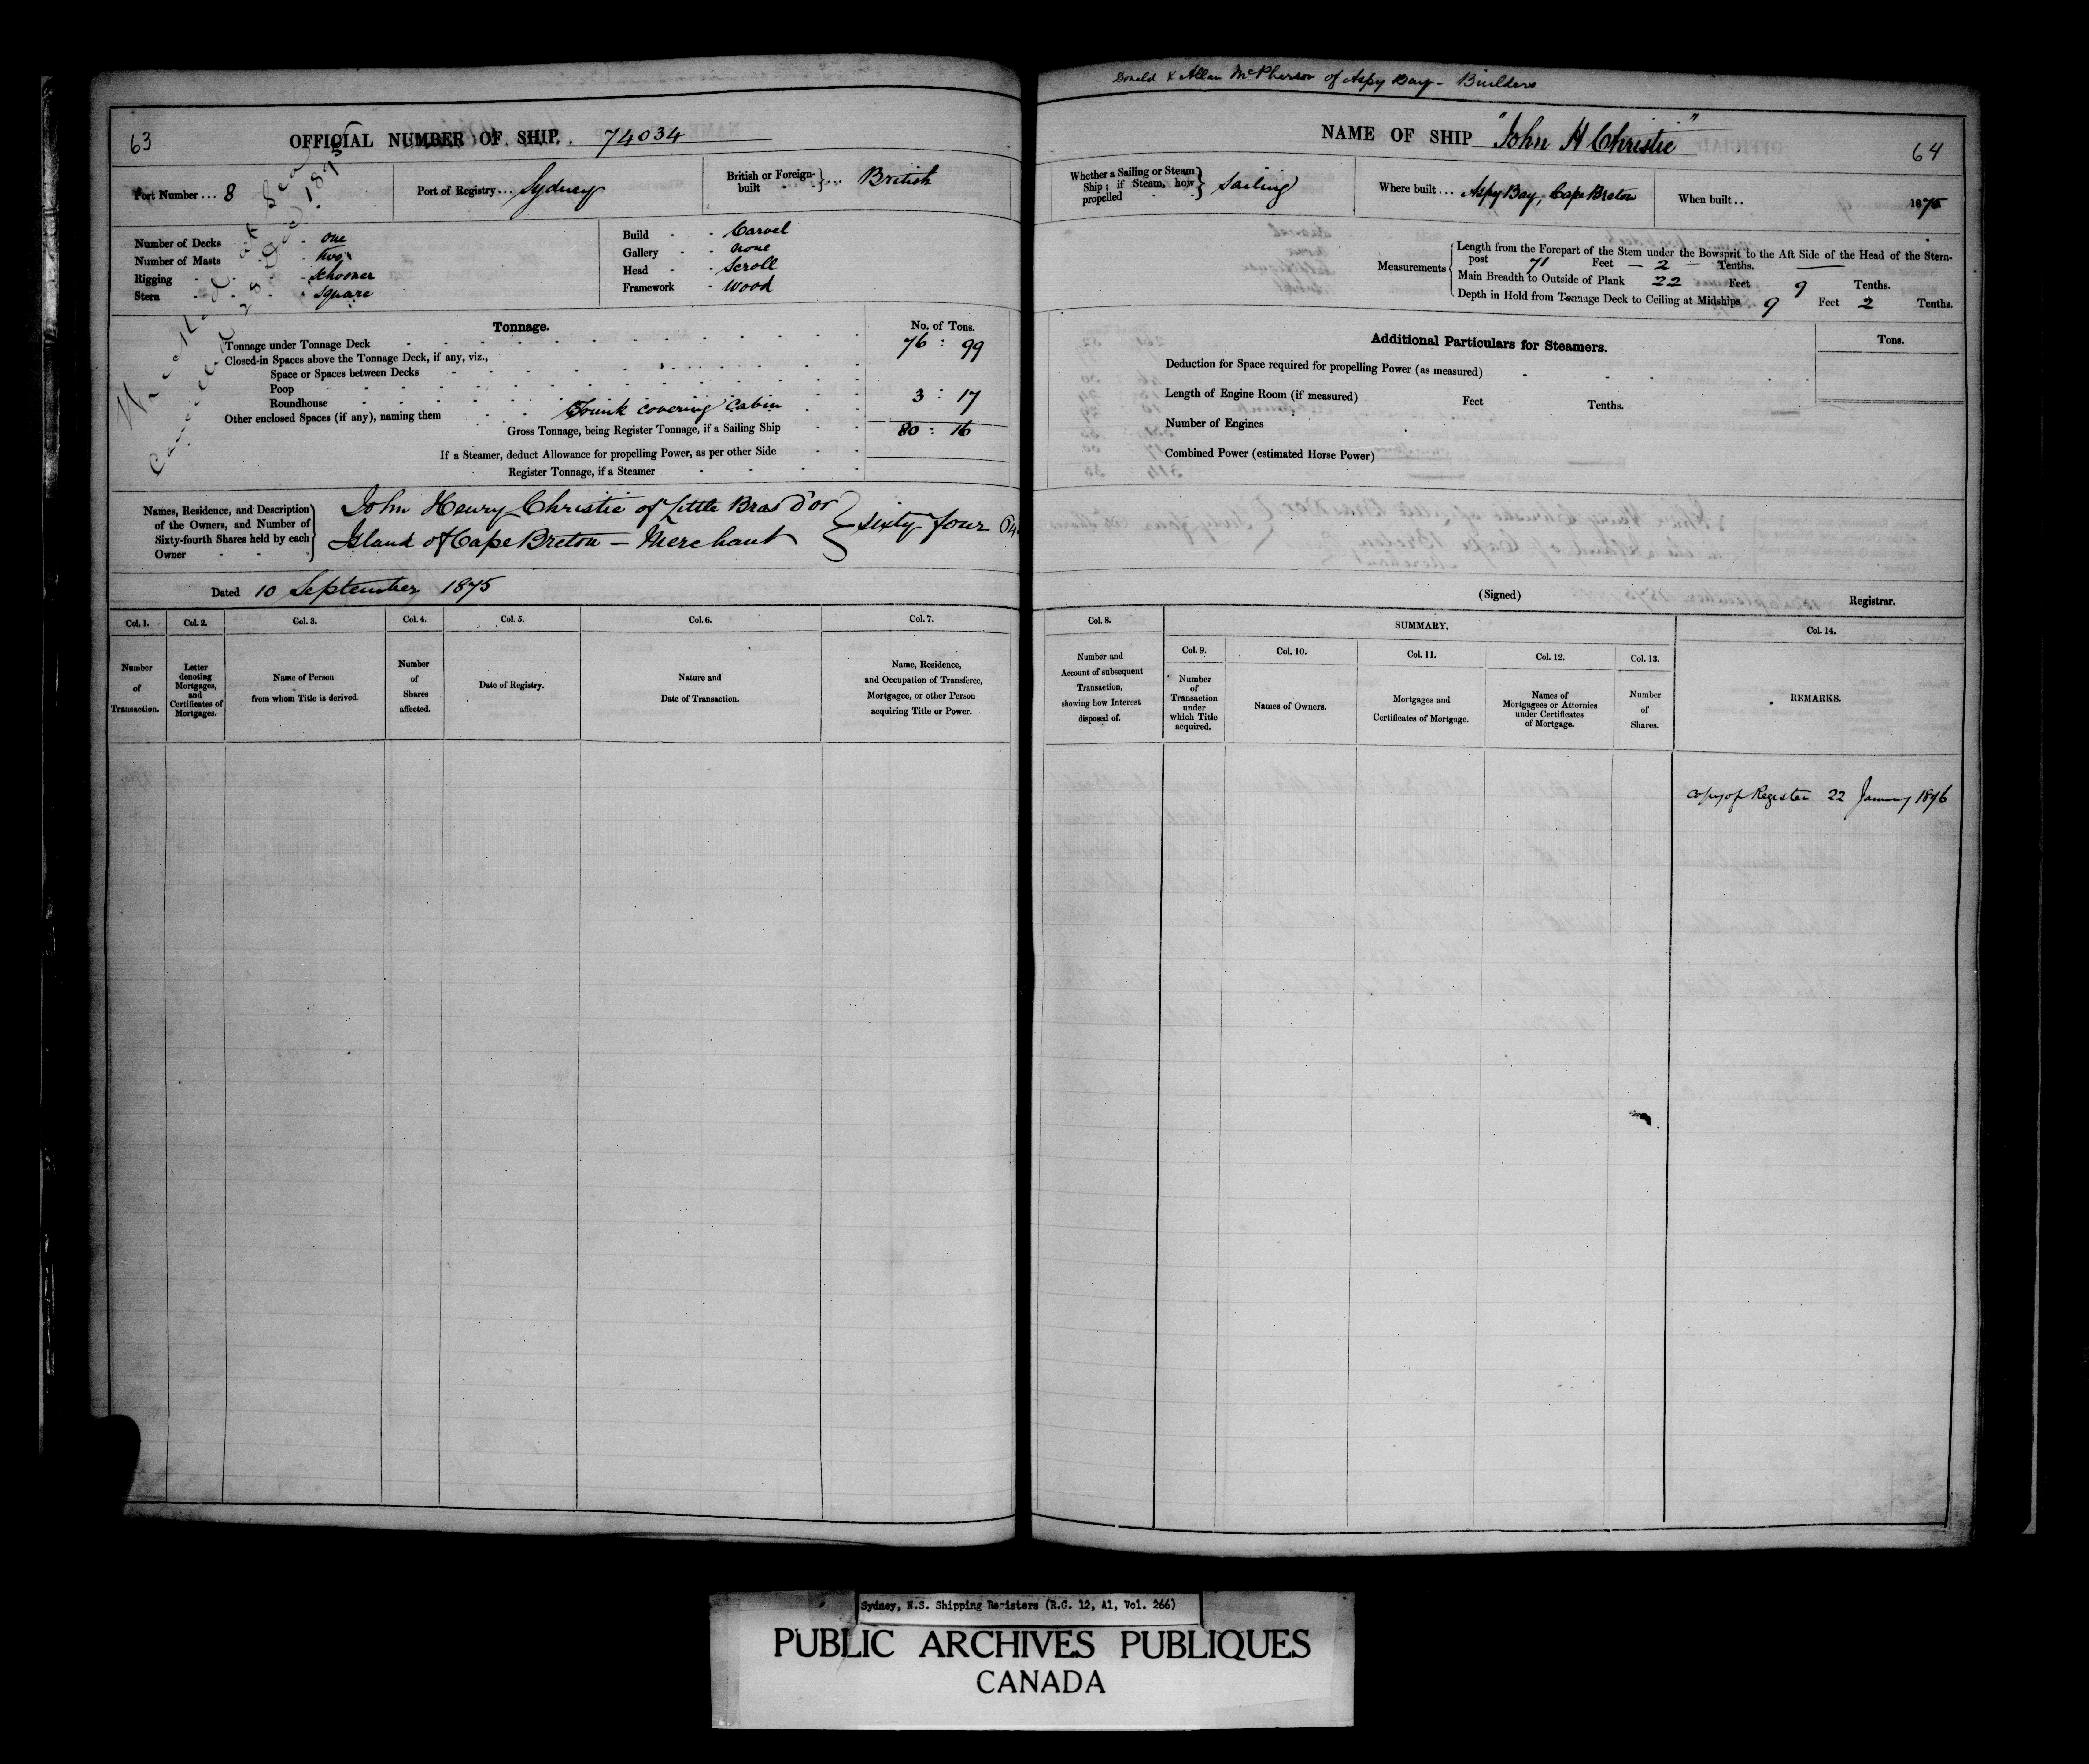 63
OFFICIAL NUMBER OF SHIP. . 74034
Port Number ... 8
Port of Registry ... Sydney
British or Foreign-built } ... British
Number of Decks - one
Number of Masts - two
Rigging - Schooner
Stern - Square
Build - Carvel
Gallery - none
Head - Scroll
Framework - Wood
Wrecked at Sea
Cancelled 28 1875
Tonnage.
No. of Tons.
Tonnage under Tonnage Deck 76 : 99
Closed-in Spaces above the Tonnage Deck, if any, viz.,
Space or Spaces between Decks
Poop
Roundhouse
Other enclosed Spaces (if any), naming them Trunk covering Cabin 3 : 17
Gross Tonnage, being Register Tonnage, if a Sailing Ship 80 : 16
If a Steamer, deduct Allowance for propelling Power, as per other Side
Register Tonnage, if a Steamer
Names, Residence, and Description of the Owners, and Number of Sixty-fourth Shares held by each Owner
John Henry Christie of Little Bras d'or
Island of Cape Breton — Merchant } sixty-four 64
Dated 10 September 1875
Col. 1. Col. 2. Col. 3. Col. 4. Col. 5. Col. 6. Col. 7.
Number of Transaction.
Letter denoting Mortgages, and Certificates of Mortgages.
Name of Person from whom Title is derived.
Number of Shares affected.
Date of Registry.
Nature and Date of Transaction.
Name, Residence, and Occupation of Transferee, Mortgagee, or other Person acquiring Title or Power.
Donald & Allan McPherson of Aspy Bay - Builders
NAME OF SHIP "John H Christie"
64
Whether a Sailing or Steam Ship; if Steam, how propelled } Sailing
Where built ... Aspy Bay, Cape Breton
When built .. 1875
Measurements
Length from the Forepart of the Stem under the Bowsprit to the Aft Side of the Head of the Stern-
post 71 Feet — 2 — Tenths.
Main Breadth to Outside of Plank 22 Feet 9 Tenths.
Depth in Hold from Tonnage Deck to Ceiling at Midships 9 Feet 2 Tenths.
Additional Particulars for Steamers.
Tons.
Deduction for Space required for propelling Power (as measured)
Length of Engine Room (if measured) Feet Tenths.
Number of Engines
Combined Power (estimated Horse Power)
(Signed) Registrar.
Col. 8. SUMMARY. Col. 14.
Col. 9. Col. 10. Col. 11. Col. 12. Col. 13.
Number and Account of subsequent Transaction, showing how Interest disposed of.
Number of Transaction under which Title acquired.
Names of Owners.
Mortgages and Certificates of Mortgage.
Names of Mortgagees or Attornies under Certificates of Mortgage.
Number of Shares.
REMARKS.
Copy of Register 22 January 1876
Sydney, N.S. Shipping Registers (R.G. 12, A1, Vol. 266)
PUBLIC ARCHIVES PUBLIQUES
CANADA